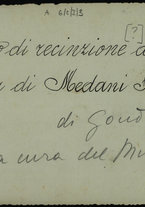 A 6/1/2/3
[?]
o di recinzione d
a di Medani
di Gond
a cura del Mu